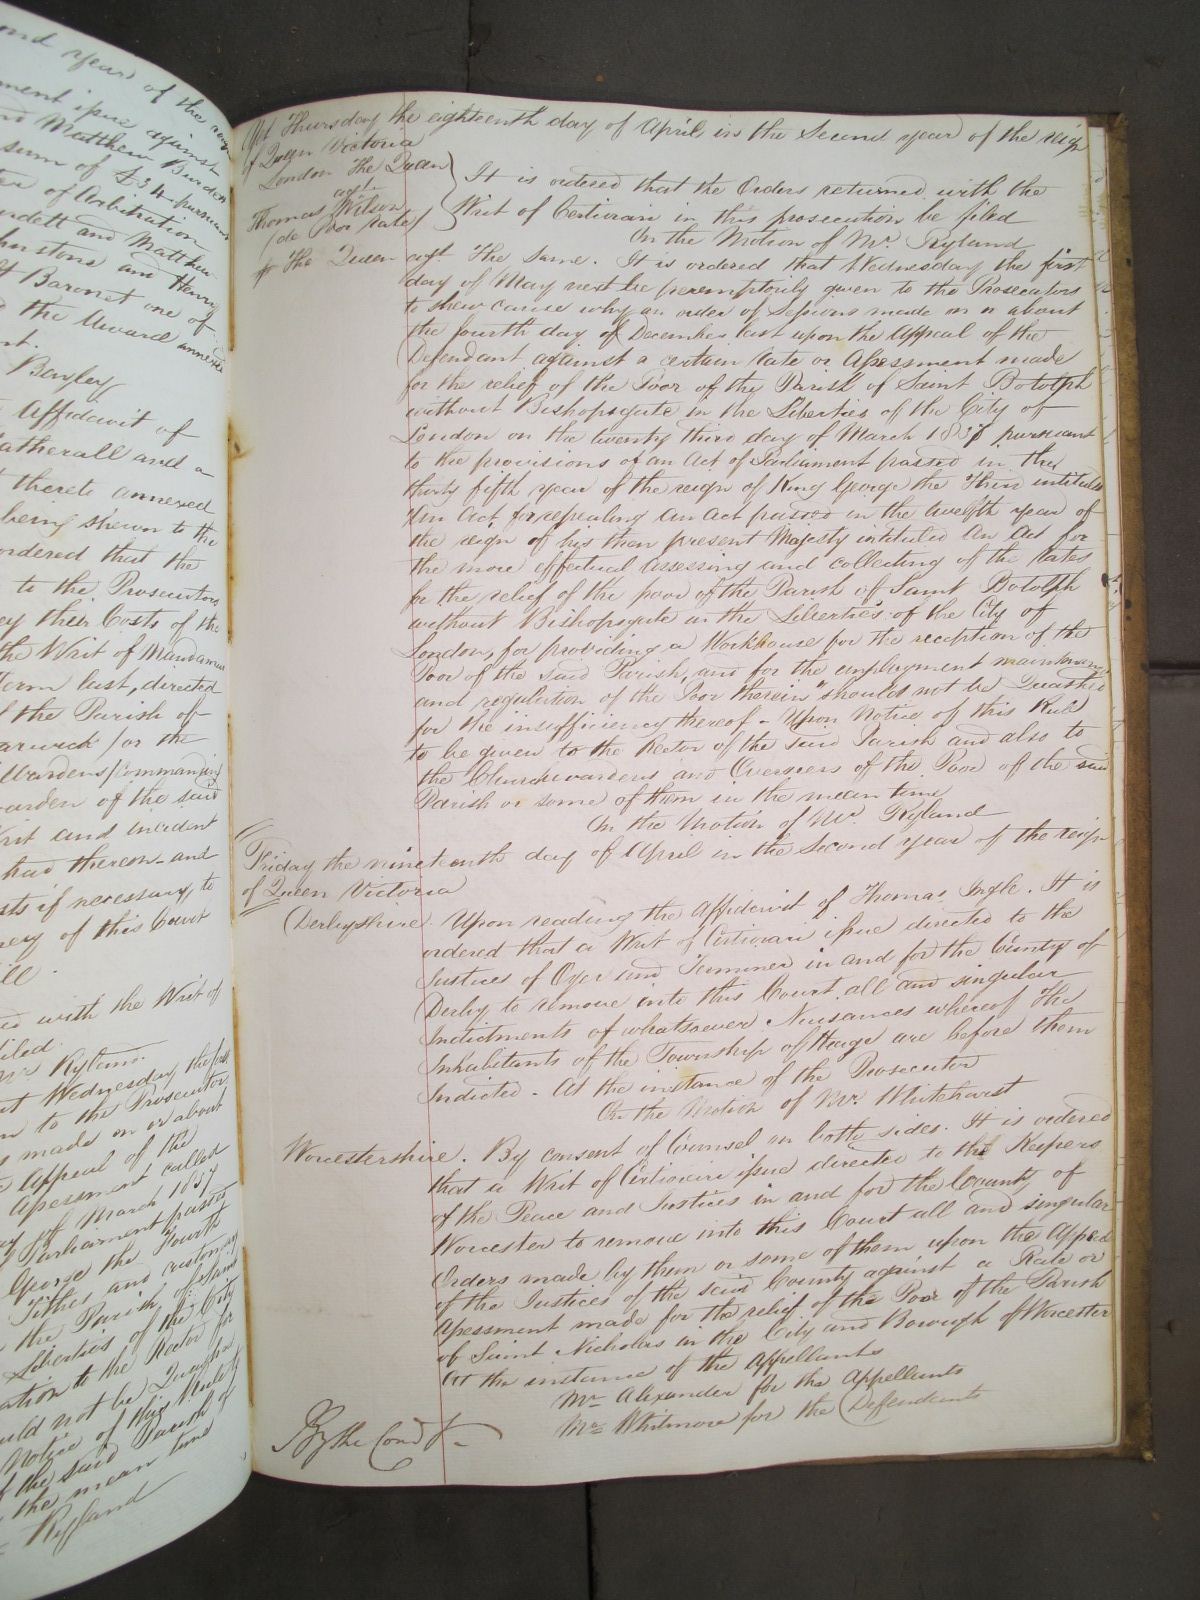 ond year of the reign
ment issue against
and Matthew Burdett
sum of £34 pursuant
ter of Arbitration
urdett and Matthew
hurstone and Henry
tt Baronet one of
to the Award annexed
nt.
Bayley
Affidavit of
atherall and a
t thereto annexed
being shewn to the
ordered that the
to the Prosecutors
ey their Costs of the
the Writ of Mandamus
Term last, directed
of the Parish of
arwick for the
Wardens commanding
arden of the said
rit and incident
had thereon and
sts if necessary, to
ney of this Court
ill.
ed with the Writ of
filed.
Mr Ryland.
at Wednesday the first
n to the Prosecutors
s made on or about
e Appeal of the
Assessment called
ay of March 1837
f Parliament passed
George the Fourth
Tithes and customary
the Parish of Saint
Liberties of the City
ation to the Rector for
uld not be Quashed
Notice of this Rule
f the said Parish of
the mean time
Ryland
Yet Thursday the eighteenth day of April in the Second year of the reign
of Queen Victoria
London The Queen
agst
Thomas Wilson
(de Poor rate)
It is ordered that the Orders returned with the
Writ of Certiorari in this prosecution be filed
On the Motion of Mr. Ryland
The Queen agst The Same. It is ordered that Wednesday the first
day of May next be peremptorily given to the Prosecutors
to shew cause why an order of Sessions made on or about
the fourth day of December last upon the Appeal of the
Defendant against a certain Rate or Assessment made
for the relief of the Poor of the Parish of Saint Botolph
without Bishopsgate in the Liberties of the City of
London on the twenty third day of March 1838 pursuant
to the provisions of an Act of Parliament passed in the
thirty fifth year of the reign of King George the Third intituled
"An Act for repealing an Act passed in the twelfth year of
the reign of his then present Majesty intituled An Act for
the more effectual assessing and collecting of the Rates
for the relief of the poor of the Parish of Saint Botolph
without Bishopsgate in the Liberties of the City of
London, for providing a Workhouse for the reception of the
Poor of the said Parish, and for the employment maintenance
and regulation of the Poor therein" should not be Quashed
for the insufficiency thereof - Upon Notice of this Rule
to be given to the Rector of the said Parish and also to
the Churchwardens and Overseers of the Poor of the said
Parish or some of them in the mean time
On the Motion of Mr. Ryland
Friday the nineteenth day of April in the Second year of the reign
of Queen Victoria
Derbyshire. Upon reading the Affidavit of Thomas Ingle. It is
ordered that a Writ of Certiorari issue directed to the
Justices of Oyer and Terminer in and for the County of
Derby to remove into this Court all and singular
Indictments of whatsoever Nuisances whereof The
Inhabitants of the Township of Heage are before them
Indicted - At the instance of the Prosecutor
On the Motion of Mr. Whitehurst
Worcestershire. By consent of Counsel on both sides. It is ordered
that a Writ of Certiorari issue directed to the Keepers
of the Peace and Justices in and for the County of
Worcester to remove into this Court all and singular
Orders made by them or some of them upon the Appeal
of the Justices of the said County against a Rate or
Assessment made for the relief of the Poor of the Parish
of Saint Nicholas in the City and Borough of Worcester
At the instance of the Appellants
Mr Alexander for the Appellants
Mr Whitmore for the Defendants
By the Court